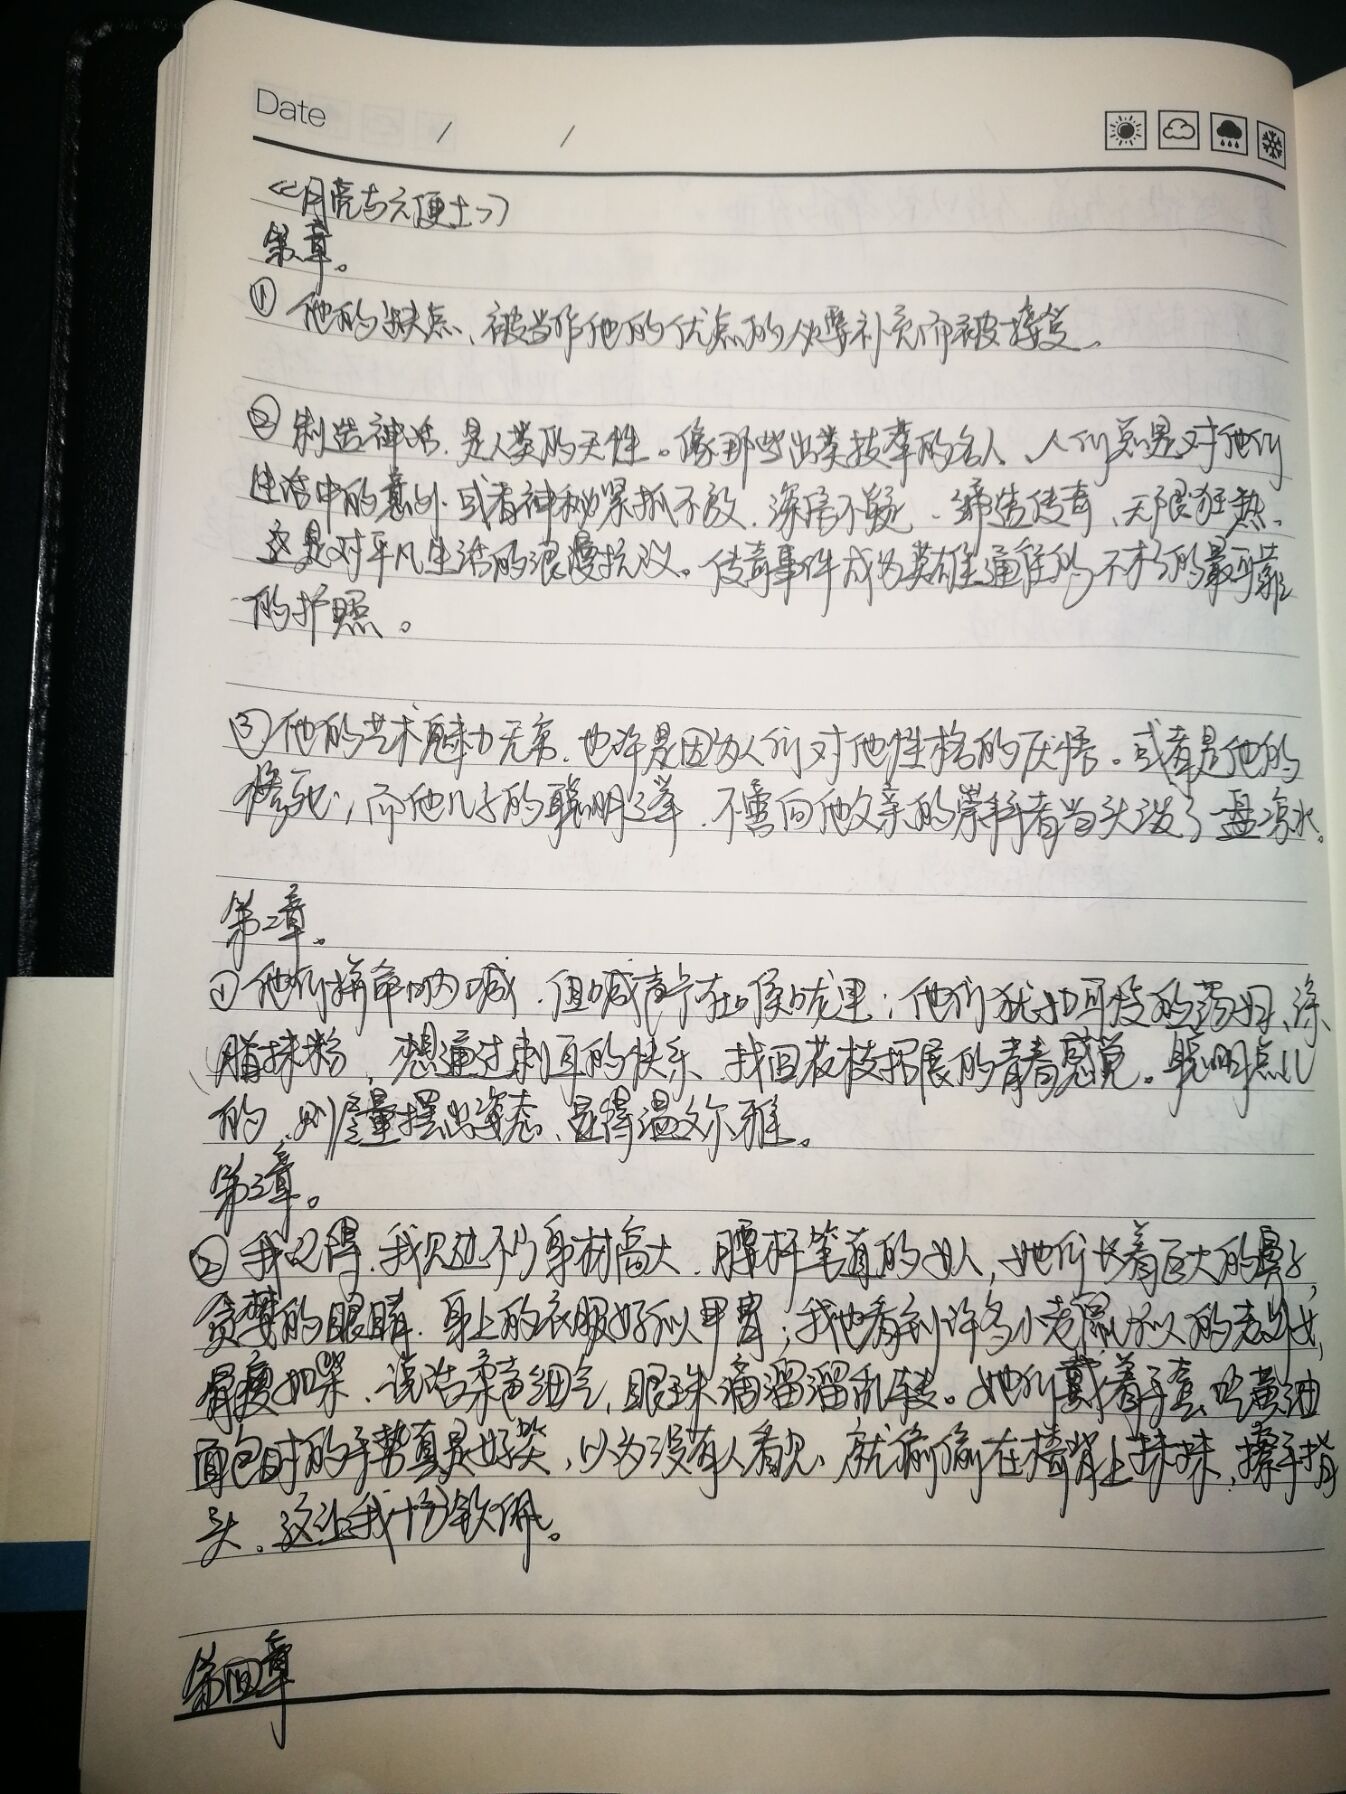 Date / /
《月亮与六便士》
第一章。
① 他的缺点、被当作他的优点的必要补充而被接受。
② 制造神话，是人类的天性。像那些出类拔萃的名人、人们总是对他们
生活中的意外，或者神秘紧抓不放，深信不疑、缔造传奇、无限狂热。
这是对平凡生活的浪漫抗议。传奇事件成为英雄通往的不朽的最可靠
的护照。
③ 他的艺术魅力无穷，也许是因为人们对他性格的厌恶。或者是他的
惨死；而他儿子的聪明之举，不啻向他父亲的崇拜者当头泼了一盘凉水。
第二章。
① 他们拼命呐喊，但喊声卡在喉咙里；他们犹如可怜的荡妇、涂
脂抹粉，想通过刺耳的快乐，找回花枝招展的青春感觉。聪明点儿
的，则尽量摆出姿态、显得温文尔雅。
第三章。
② 我记得，我见过不少身材高大、腰杆笔直的女人，她们长着巨大的鼻子，
贪婪的眼睛，身上的衣服好似甲胄；我也看到许多小老鼠似的老处女，
骨瘦如柴，说话柔声细气，眼珠滴溜溜乱转。她们戴着手套、吃黄油
面包时的手势真是好笑，以为没有人看见、就偷偷在椅背上抹抹，擦手指
头，这让我十分钦佩。
第四章